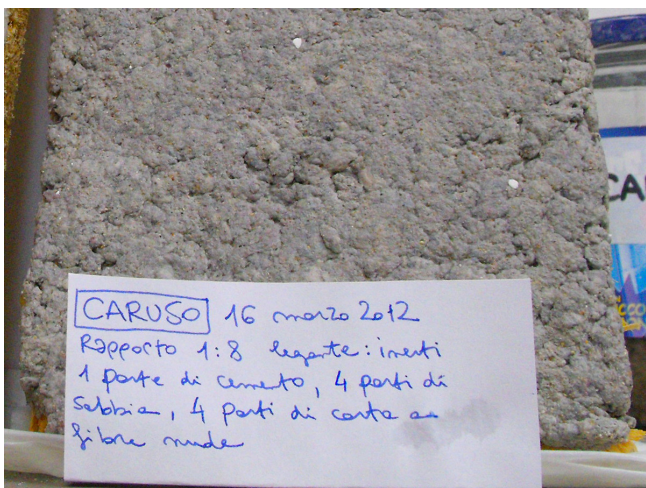 CARUSO 16 marzo 2012
Rapporto 1:8 legante: inerti
1 parte di cemento, 4 parti di
sabbia, 4 parti di carta a
fibre nude
CA